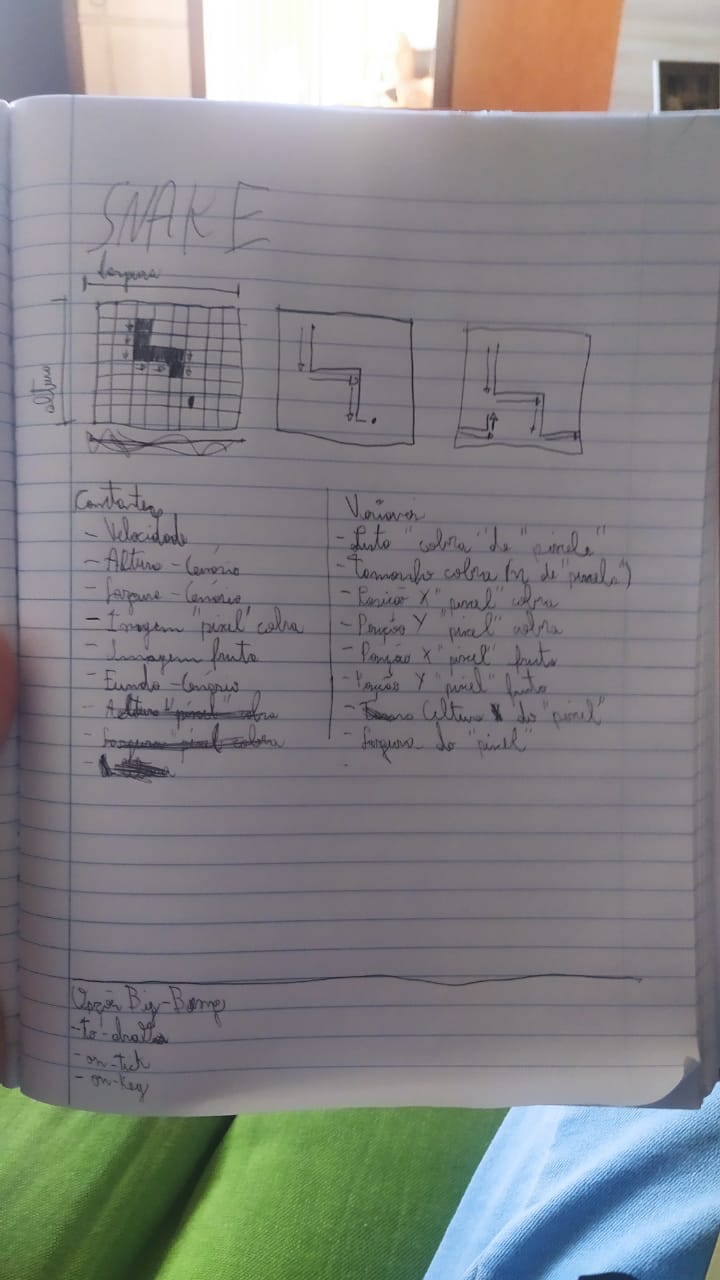 SNAKE
largura
altura
Constantes
- Velocidade
- Altura - Cenário
- Largura - Cenário
- Imagem "pixel" cobra
- Imagem fruta
- Fundo - Cenário
- Altura "pixel" cobra
- Largura "pixel" cobra
Variáveis
- Lista "cobra" de "pixels"
- Tamanho cobra (n de "pixels")
- Posição X "pixel" cobra
- Posição Y "pixel" cobra
- Posição X "pixel" fruta
- Posição Y "pixel" fruta
- Altura do "pixel"
- Largura do "pixel"
Big-Bang
- to-draw
- on-tick
- on-key